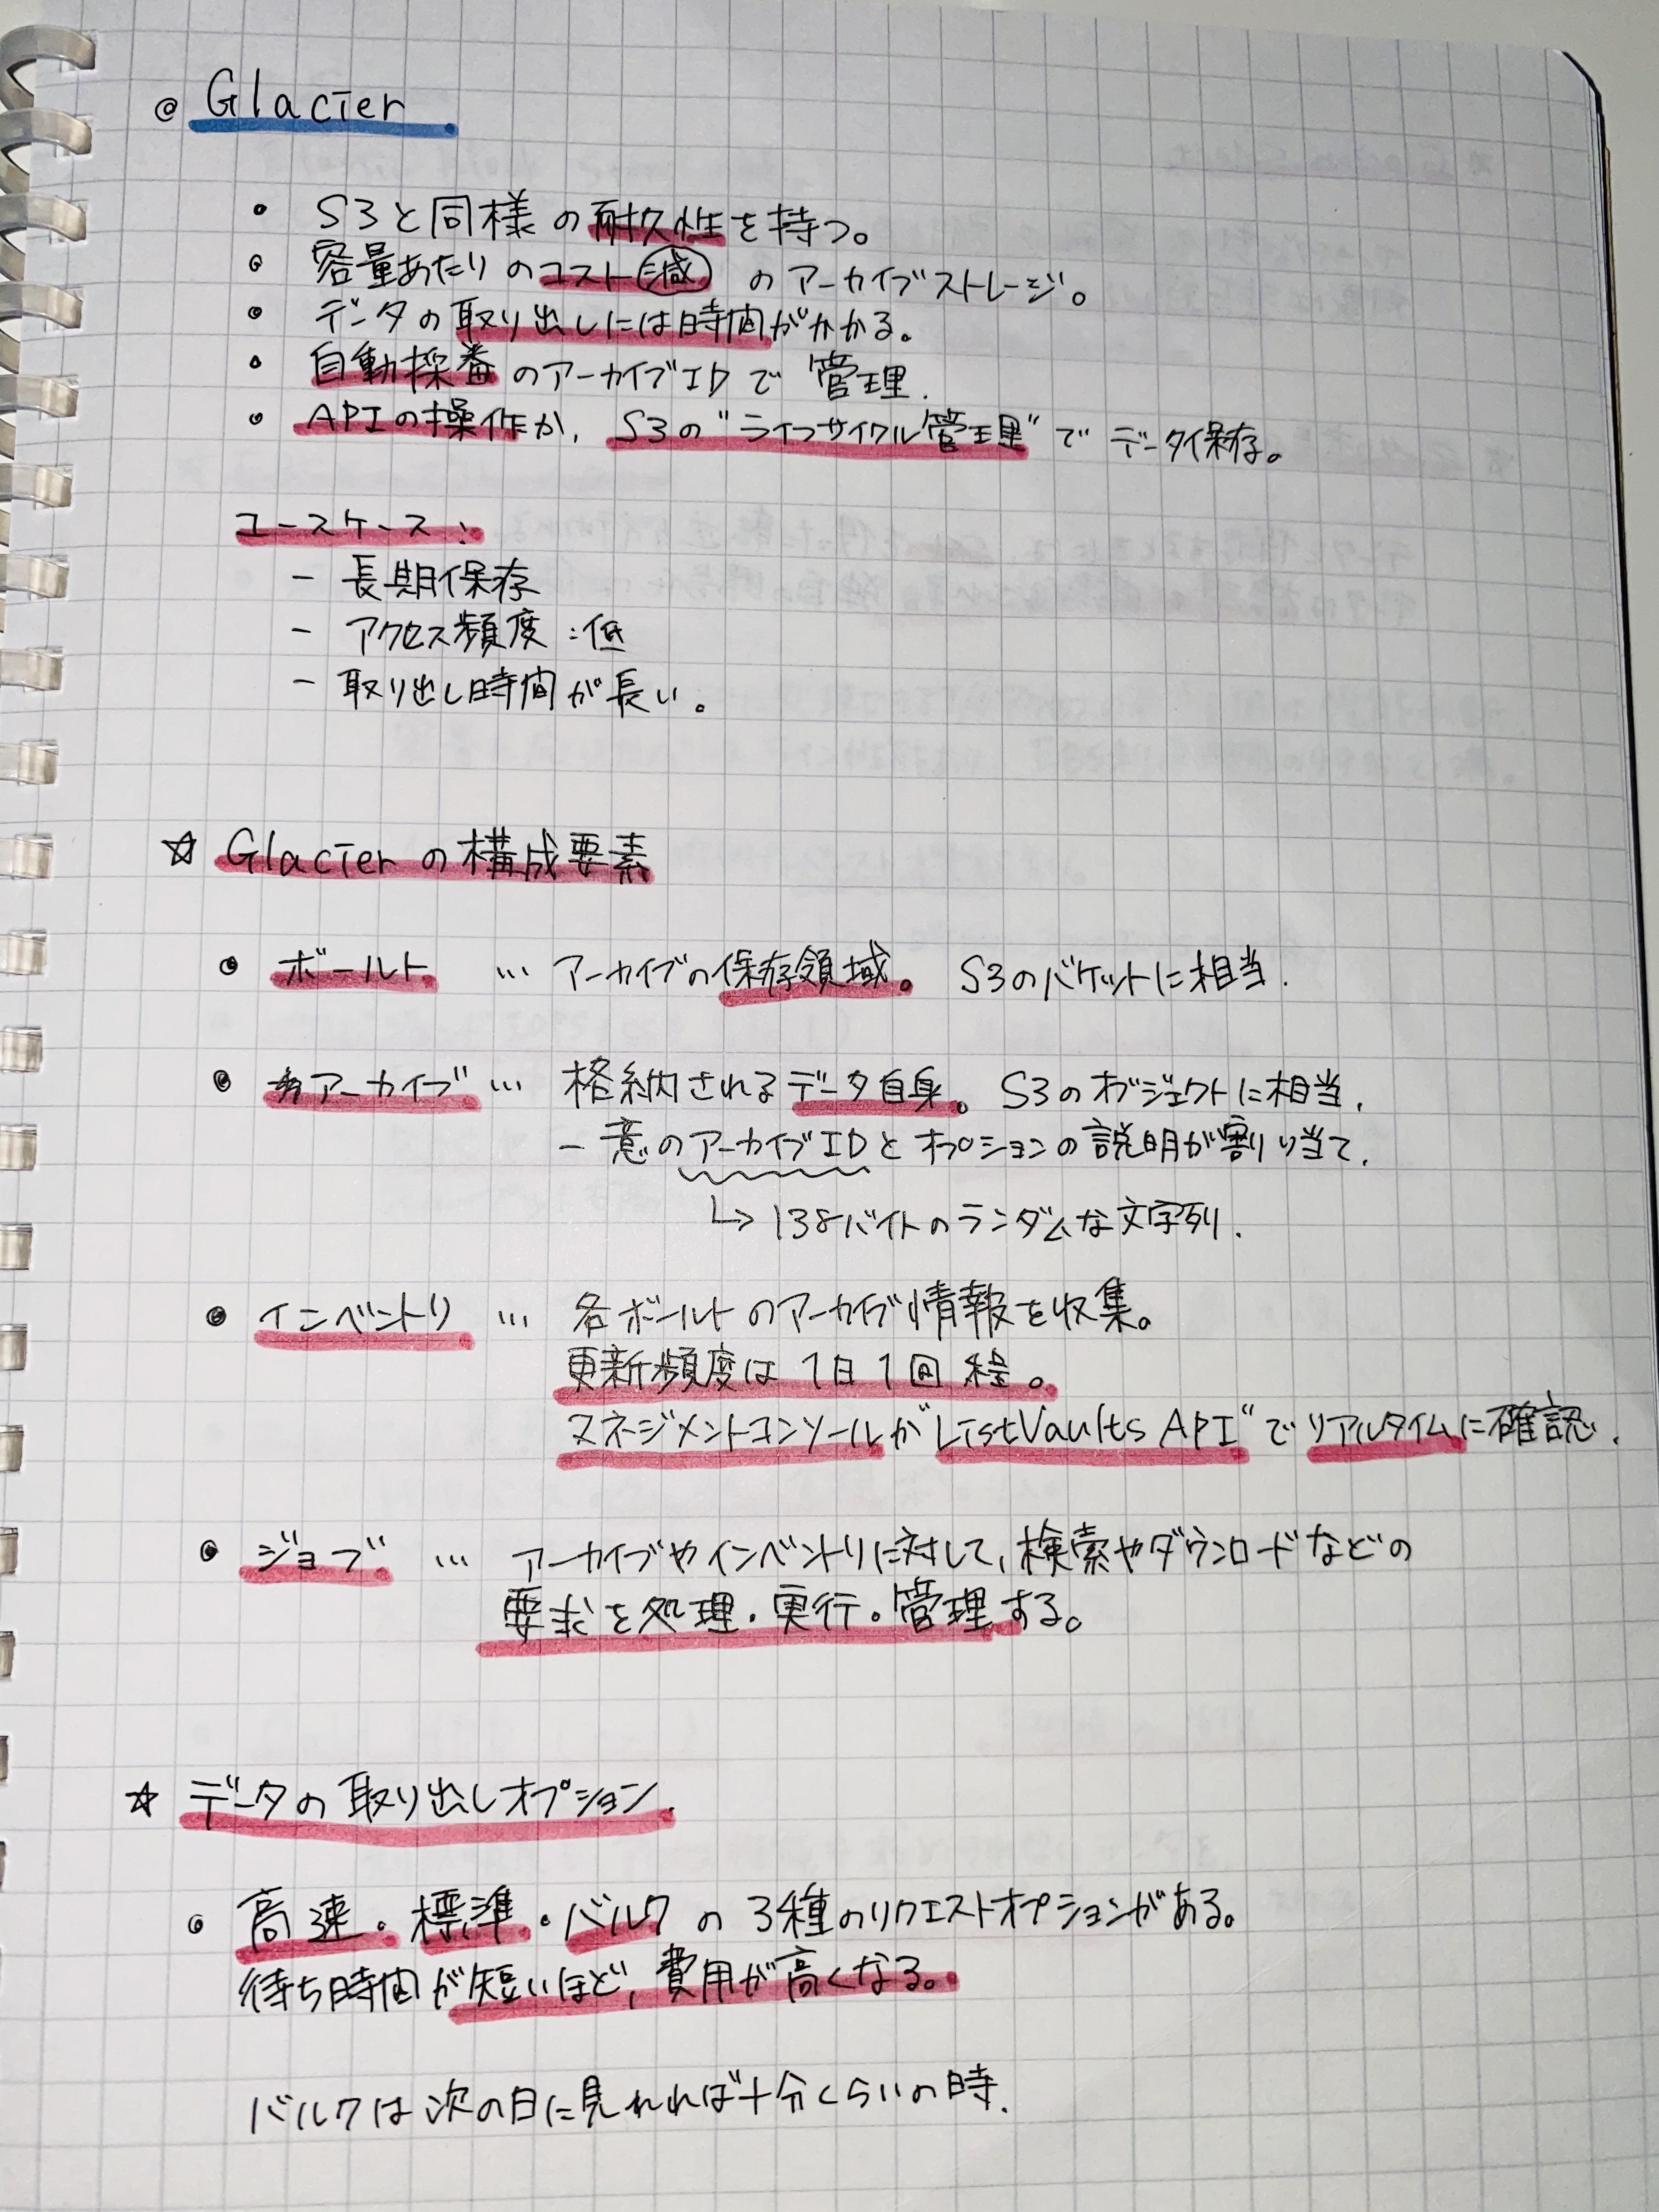 ◎ Glacier
・ S3と同様の耐久性を持つ。
・ 容量あたりのコスト減 のアーカイブストレージ。
・ データの取り出しには時間がかかる。
・ 自動採番のアーカイブIDで管理.
・ APIの操作か, S3の"ライフサイクル管理"でデータ保存。
ユースケース:
- 長期保存
- アクセス頻度:低
- 取り出し時間が長い。
☆ Glacierの構成要素
・ ボールト … アーカイブの保存領域。 S3のバケットに相当.
・ アーカイブ … 格納されるデータ自身。 S3のオブジェクトに相当.
一意のアーカイブIDとオプションの説明が割り当て.
↳ 138バイトのランダムな文字列.
・ インベントリ … 各ボールトのアーカイブ情報を収集。
更新頻度は1日1回程。
マネジメントコンソールか"ListVaults API"でリアルタイムに確認.
・ ジョブ … アーカイブやインベントリに対して, 検索やダウンロードなどの
要求を処理・実行・管理する。
☆ データの取り出しオプション.
・ 高速・標準・バルクの3種のリクエストオプションがある。
待ち時間が短いほど, 費用が高くなる。
バルクは次の日に見れれば十分くらいの時.